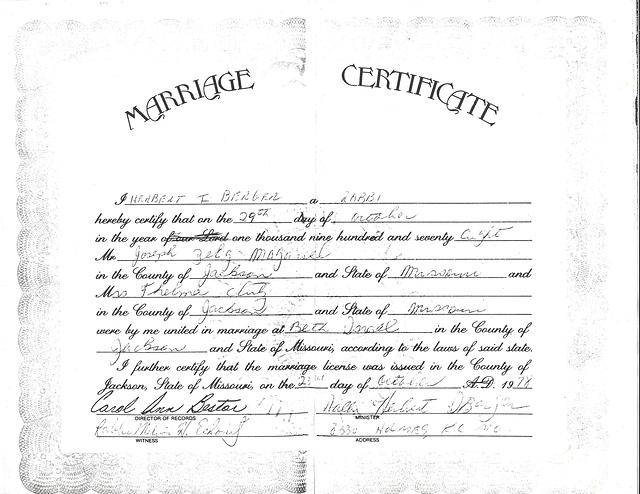 MARRIAGE CERTIFICATE
I HERBERT I BERGER a RABBI
hereby certify that on the 29th day of October
in the year of our Lord one thousand nine hundred and seventy Eight
Mr Joseph
in the County of Jackson and State of Missouri and
M Thelma
in the County of Jackson and State of Missouri
were by me united in marriage at Beth Israel in the County of
Jackson and State of Missouri, according to the laws of said state.
I further certify that the marriage license was issued in the County of
Jackson, State of Missouri, on the day of October A.D. 1978
Carol Ann Rabbi Herbert
DIRECTOR OF RECORDS MINISTER
Rabbi HOLMES, K.C. MO
WITNESS ADDRESS